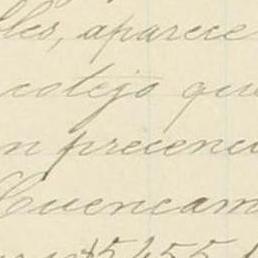 lles, aparece
cotejo que
n precenci
Cuencam
$5,455